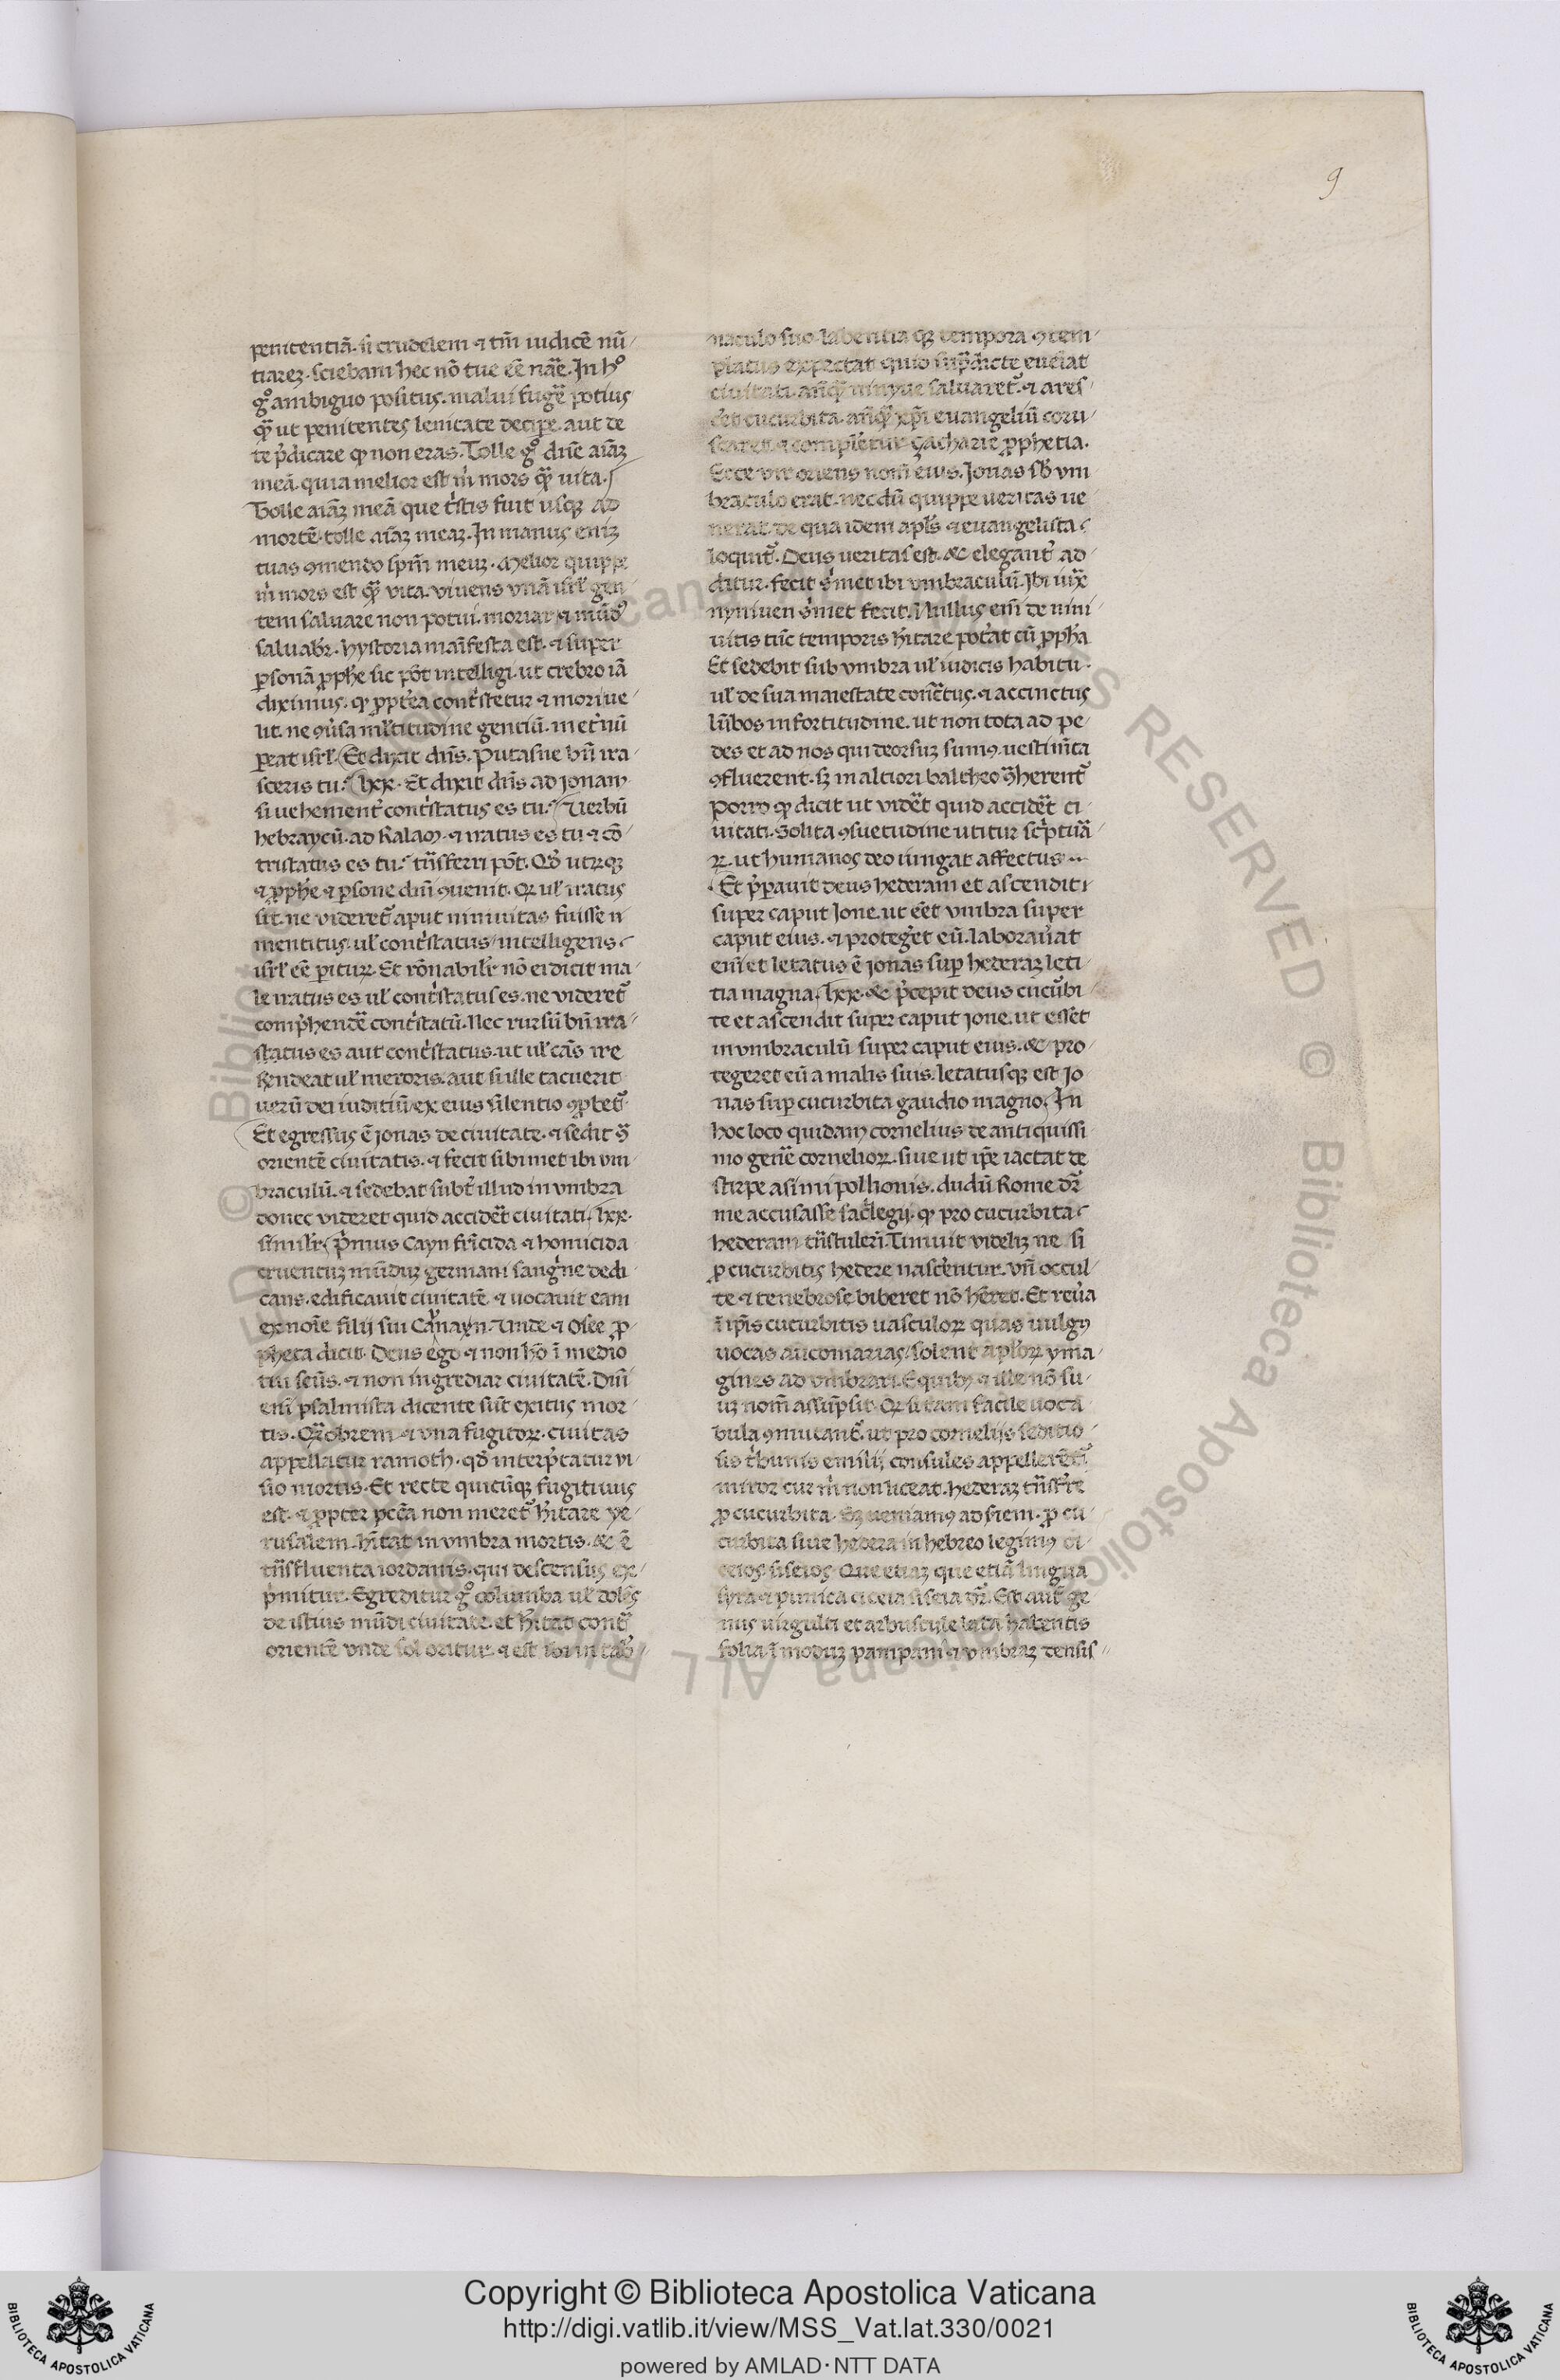 9
penitentiā. ñ crudelem ⁊ tm̄ iudicē nū
tiarez. sciebam hec nō tue eē nāe. In hͦ
gͦ ambiguo positus. malui fugē potius
qͣ ut penitentes lenitate decipe. aut de
te p̄dicare ꝙ non eras. Tolle gͦ dn̄e aiāz
meā. quia melior est m̄ mors qͣ uita.
Tolle aiāz meā que tͥstis fuit usqz ad
mortē. tolle aiāz meaz. In manus eniz
tuas ꝯmendo spm̄ meuz. Melior quippe
m̄ mors est qͣ vita. vivens vnā isrl̄ gen
tem saluare non potui. moriar ⁊ mūdꝰ
saluabr̄. hystoria maīfesta est. ⁊ super
ꝑsonā ꝓphe sic pōt intelligi. ut crebro iā
diximus. ꝙ ꝓpt̄ea contͥstetur ⁊ mori ue
lit. ne ꝯuˀsa ml̄titudine gentiū. inet̄nū
ꝑeat isrl̄. Et dixit dn̄s. Putasne bn̄ ira
sceris tu. lxx. Et dixit dn̄s ad Jonam
si uehement̄ contͥstatus es tu. Uerbū
hebraycū. ad Ralaꝫ. ⁊ iratus es tu ⁊ cō
tristatus es tu. tn̄sferri pōt. Qđ utrqz
⁊ ꝓphe ⁊ ꝑsone dn̄i ꝯuenit. Qꝛ ul̄ iratus
sit. ne videretˀ aput niniuitas fuisse
mentitus. ul̄ contͥstatus intelligens
isrl̄ eē ꝑiturꝝ. Et rōnabilr̄ nō ei dicit ma
le iratus es ul̄ contͥstatus es. ne videretˀ
comp̄hendē contͥstatū. Nec rursū bn̄ ira
status es aut contͥstatus. ut ul̄ cās ire
rn̄deat ul̄ meroris. aut si ille tacuerit
uerū dei iuditiū ex eius silentio ꝯprobetˀ
Et egressus ē Jonas de ciuitate. ⁊ sedit ꝯͣ
orientē ciuitatis. ⁊ fecit sibimet ibi vm
braculū. ⁊ sedebat subt̄ illud in vmbra
donec videret quid accidēt ciuitati. lxx.
simil̄r. p̄mius Cayn fr̄icida ⁊ homicida
cruentuz mūduz germani sangͥne dedi
cans. edificauit ciuitatē ⁊ uocauit eam
ex noīe filij sui Cānaxn. Unde ⁊ Osee ꝓ
pheta dicit. Deus ego ⁊ non hō ī medio
tui sc̄us. ⁊ non ingrediar ciuitatē. Dn̄i
eni psalmista dicente sūt exitus mor
tis. Qͣobrem ⁊ vna fugitorꝝ. ciuitas
appellatur ramoth. qđ interp̄tatur vi
sio mortis. Et recte quicūqz fugitiuus
est. ⁊ ꝓpter pcc̄a non meretˀ hitare ye
rusalem. hitat in vmbra mortis. &c ē
tn̄sfluenta iordanis. qui descensus ex
p̄mitur. Egreditur gͦ columba ul̄ dolēs
de istius mūdi ciuitate. et hitat contͣ
orientē vnde sol oritur. ⁊ est ibi in tabˀ
naculo suo. labentia qz tempora ꝯtem
platus expectat quid sup̄dicte eueniat
ciuitati. añqͣ ninyue saluaretˀ. ⁊ ares
ceret cucurbita. añqͣ xp̄i euangeliū coru
scaret. ⁊ completur zacharie ꝓphetia.
Ecce vir oriens nom̄ eius. Jonas sb̄ vm
braculo erat. necdū quippe ueritas ue
nerat. de qua idem apl̄s ⁊ euangelista
loquitˀ. Deus ueritas est. &c elegant̄ ad
ditur. fecit s̄met ibi vmbraculū. Ibi iuxͣ
nyniuen s̄met fecit. Nullus eni de nini
uitis tūc temporis hitare poterat cū ꝓpha
Et sedebit sub vmbra ul̄ iudicis habitu.
ul̄ de sua maiestate contͣctus. ⁊ accinctus
lūbos in fortitudine. ut non tota ad pe
des et ad nos qui deorsuz sumꝰ. uestimīta
ꝯfluerent. sz in altiori baltheo ꝯͣherentˀ
Porro ꝙ dicit ut vidēt quid accidēt ci
uitati. Solita ꝯsuetudine utitur scͥptūa
ꝝ. ut humanos deo iungat affectus..
Et p̄parauit deus hederam et ascendit
super caput Jone. ut eēt vmbra super
caput eius. ⁊ protegēt eū. laborauāt
eni et letatus ē Jonas sup hederaz leti
tia magna. lxx. &c p̄cepit deus cucūbi
te et ascendit super caput Jone. ut esset
in vmbraculū super caput eius. &c pro
tegeret eū a malis suis. letatusqz est Jo
nas sup cucurbita gaudio magno. In
hoc loco quidam cornelius de antiquissi
mo genē corneliorꝝ. siue ut ip̄e iactat de
stirpe asimi polhonis. dudū Rome dr̄
me accusasse sacͥlegij. ꝙ pro cucurbita
hederam tn̄stulerī. Timuit videlz ne si
ꝓ cucurbitis hedere nascerentur. vn̄ occul
te ⁊ tenebrose biberet nō hēret. Et reuˀa
ī ip̄is cucurbitis uasculorꝝ quas uulgꝰ
uocas aucomarias. solent apl̄orꝝ yma
gines ad vmbrari. E quibꝫ ⁊ ille nō su
uz nom̄ assūpsit. Qꝛ si tam facile uoca
bula ꝯmutantˀ. ut pro cornelijs seditio
sis tͥbunis emilij consules appellerētˀ
miror cur m̄ non liceat. hederaz tn̄sfr̄re
ꝓ cucurbita. Sz ueniamꝰ ad siem. ꝓ cu
curbita siue hedera in hebreo legimꝰ ci
ceios siseios. Que etiaz que etiā lingua
syra ⁊ punica ciceia siseia dr̄. Est aut̄ ge
nus virgulti et arbuscule lata habentis
folia ī moduz pampani ⁊ vmbraz densis
© Biblioteca Apostolica Vaticana ALL RIGHTS RESERVED
Copyright © Biblioteca Apostolica Vaticana
http://digi.vatlib.it/view/MSS_Vat.lat.330/0021
powered by AMLAD·NTT DATA
BIBLIOTECA APOSTOLICA VATICANA
BIBLIOTECA APOSTOLICA VATICANA